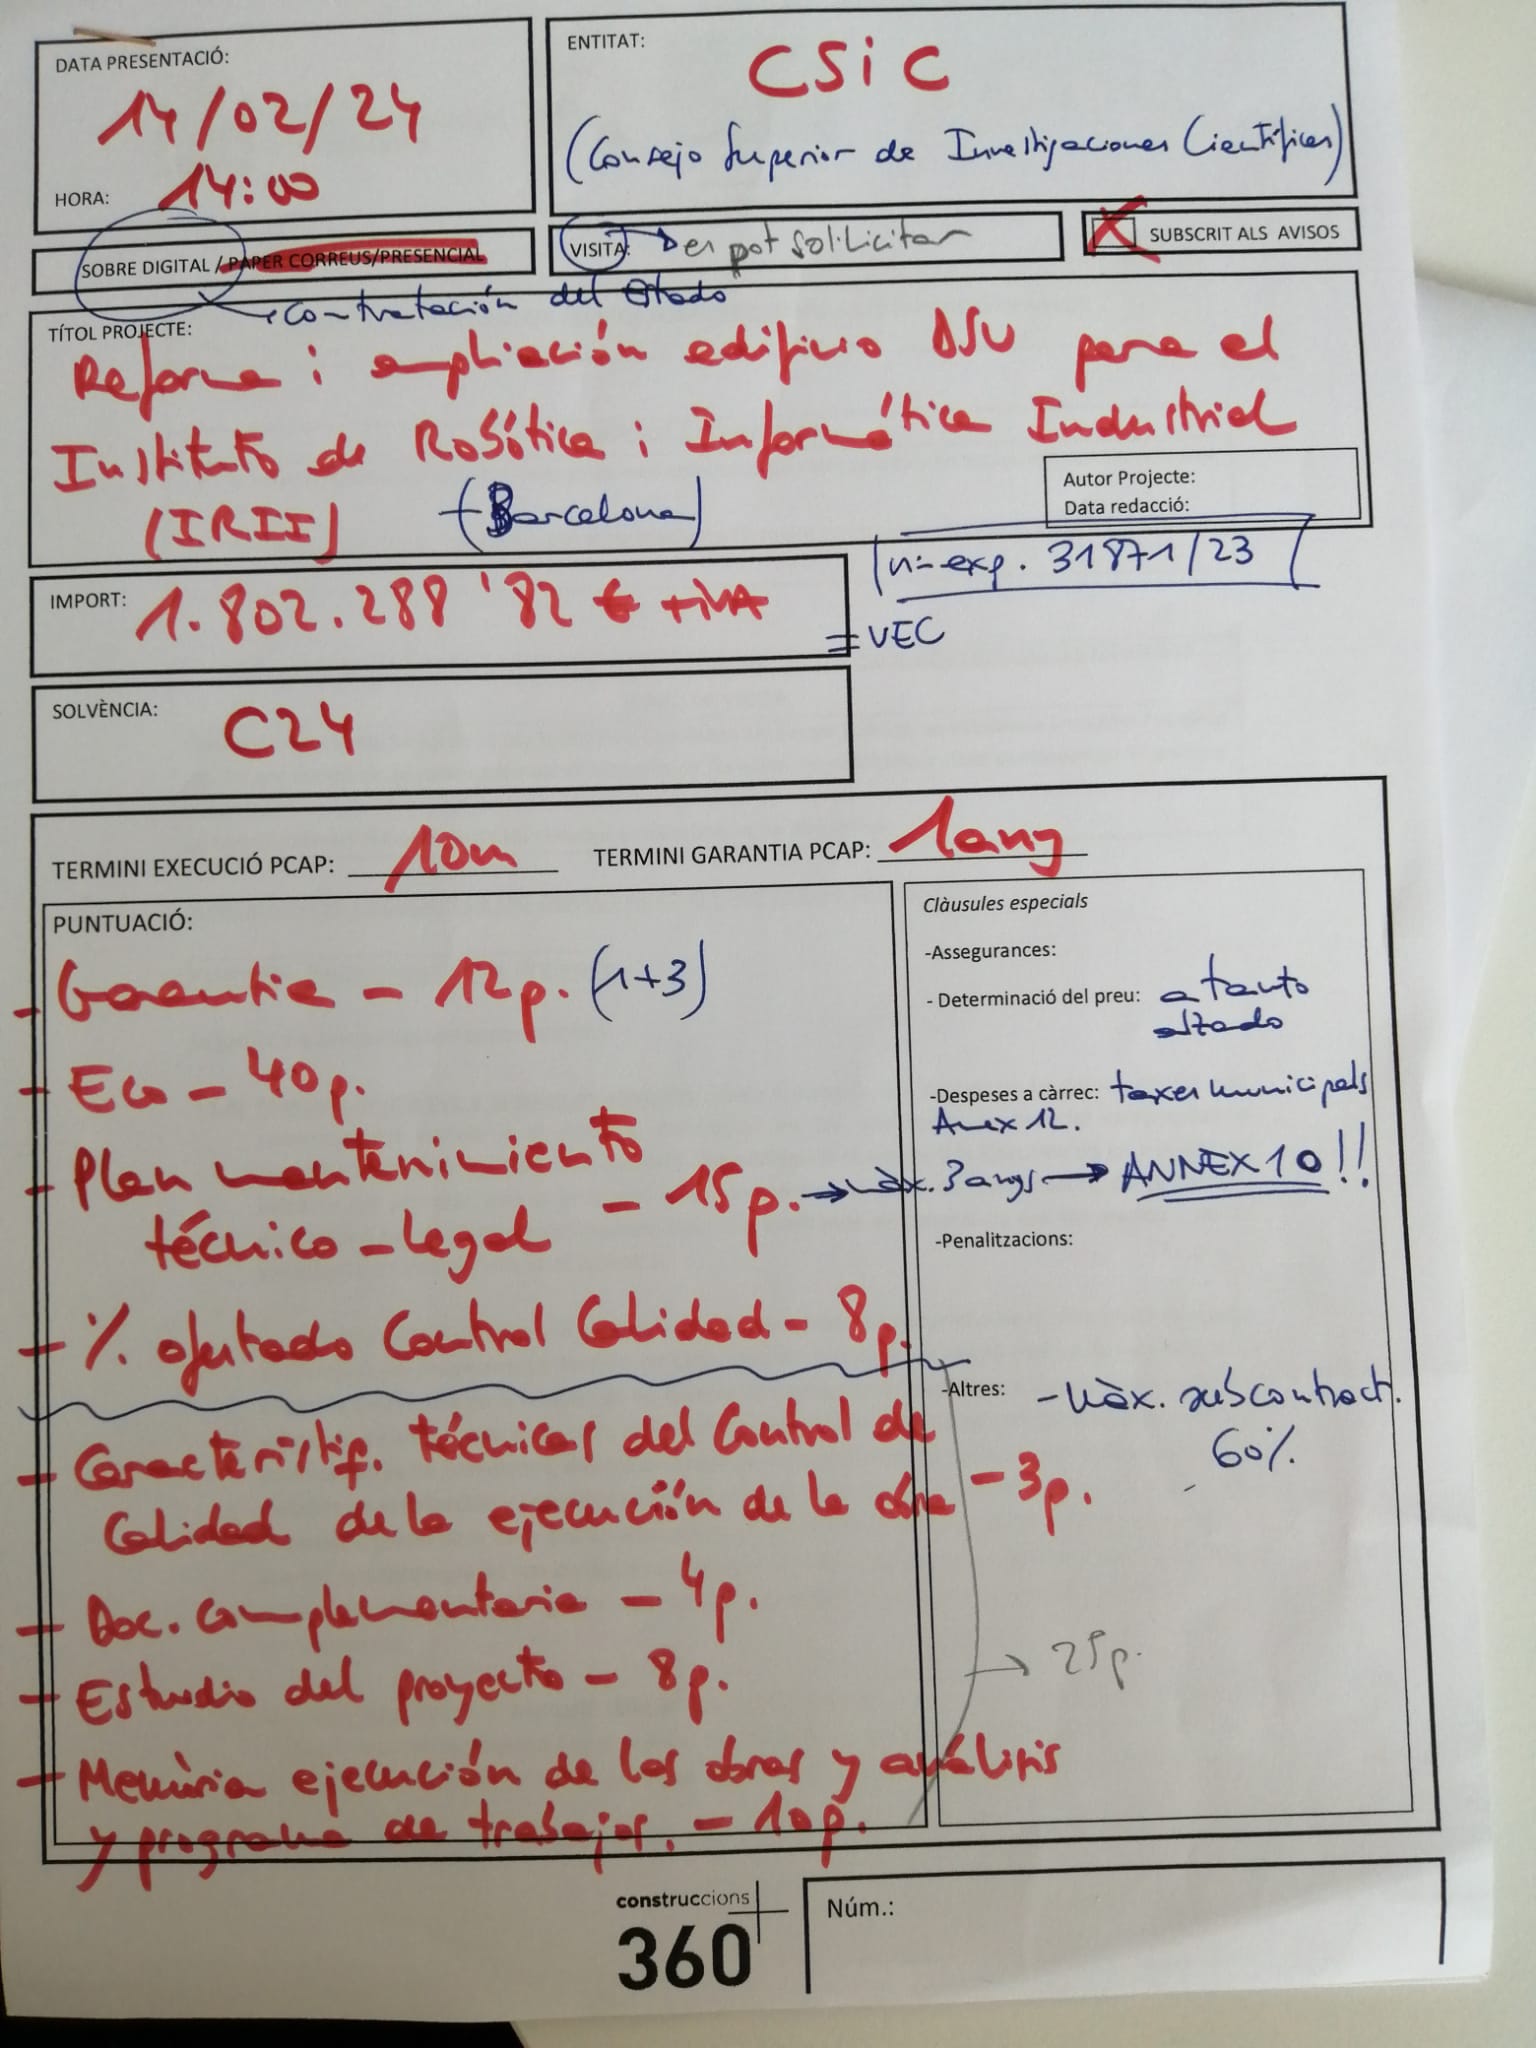 DATA PRESENTACIÓ:
14/02/24
HORA: 14:00
ENTITAT: CSiC
(Consejo Superior de Investigaciones Científicas)
SOBRE DIGITAL / PAPER CORREUS/PRESENCIAL
VISITA: → es pot sol·licitar
X SUBSCRIT ALS AVISOS
contratación del Estado
TÍTOL PROJECTE:
Reforma i ampliación edificio DSU para el
Instituto de Robótica i Informática Industrial
(IRII) (Barcelona)
Autor Projecte:
Data redacció:
nº exp. 31871/23
IMPORT: 1.802.288'82 € +iVA
= VEC
SOLVÈNCIA: C24
TERMINI EXECUCIÓ PCAP: 10m TERMINI GARANTIA PCAP: 1 any
PUNTUACIÓ:
- Garantia - 12p. (1+3)
- Eco - 40p.
- Plan mantenimiento
técnico-legal - 15p. → màx. 3 anys → ANNEX 10!!
- % ofertado Control Calidad - 8p.
- Característiq. técnicas del Control de
Calidad de la ejecución de la obra - 3p.
- Doc. complementaria - 4p.
- Estudio del proyecto - 8p.
- Memòria ejecución de las obras y análisis
y programa de trabajos. - 10p.
→ 25p.
Clàusules especials
-Assegurances:
- Determinació del preu: a tanto
alzado
-Despeses a càrrec: taxes municipals
Anex 12.
-Penalitzacions:
-Altres: - Màx. subcontract.
60%
construccions
360
Núm.: